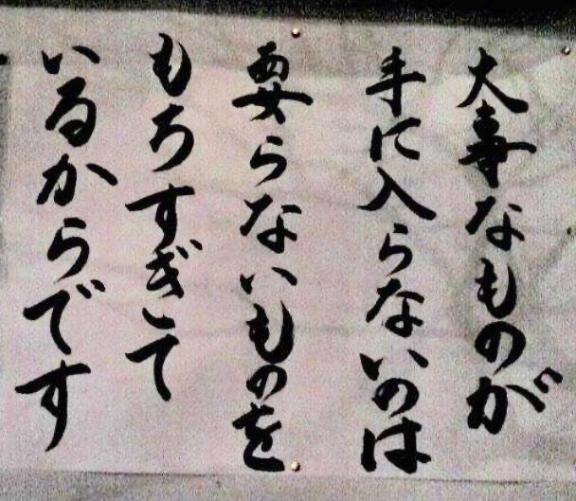 大事なものが
手に入らないのは
要らないものを
もちすぎて
いるからです